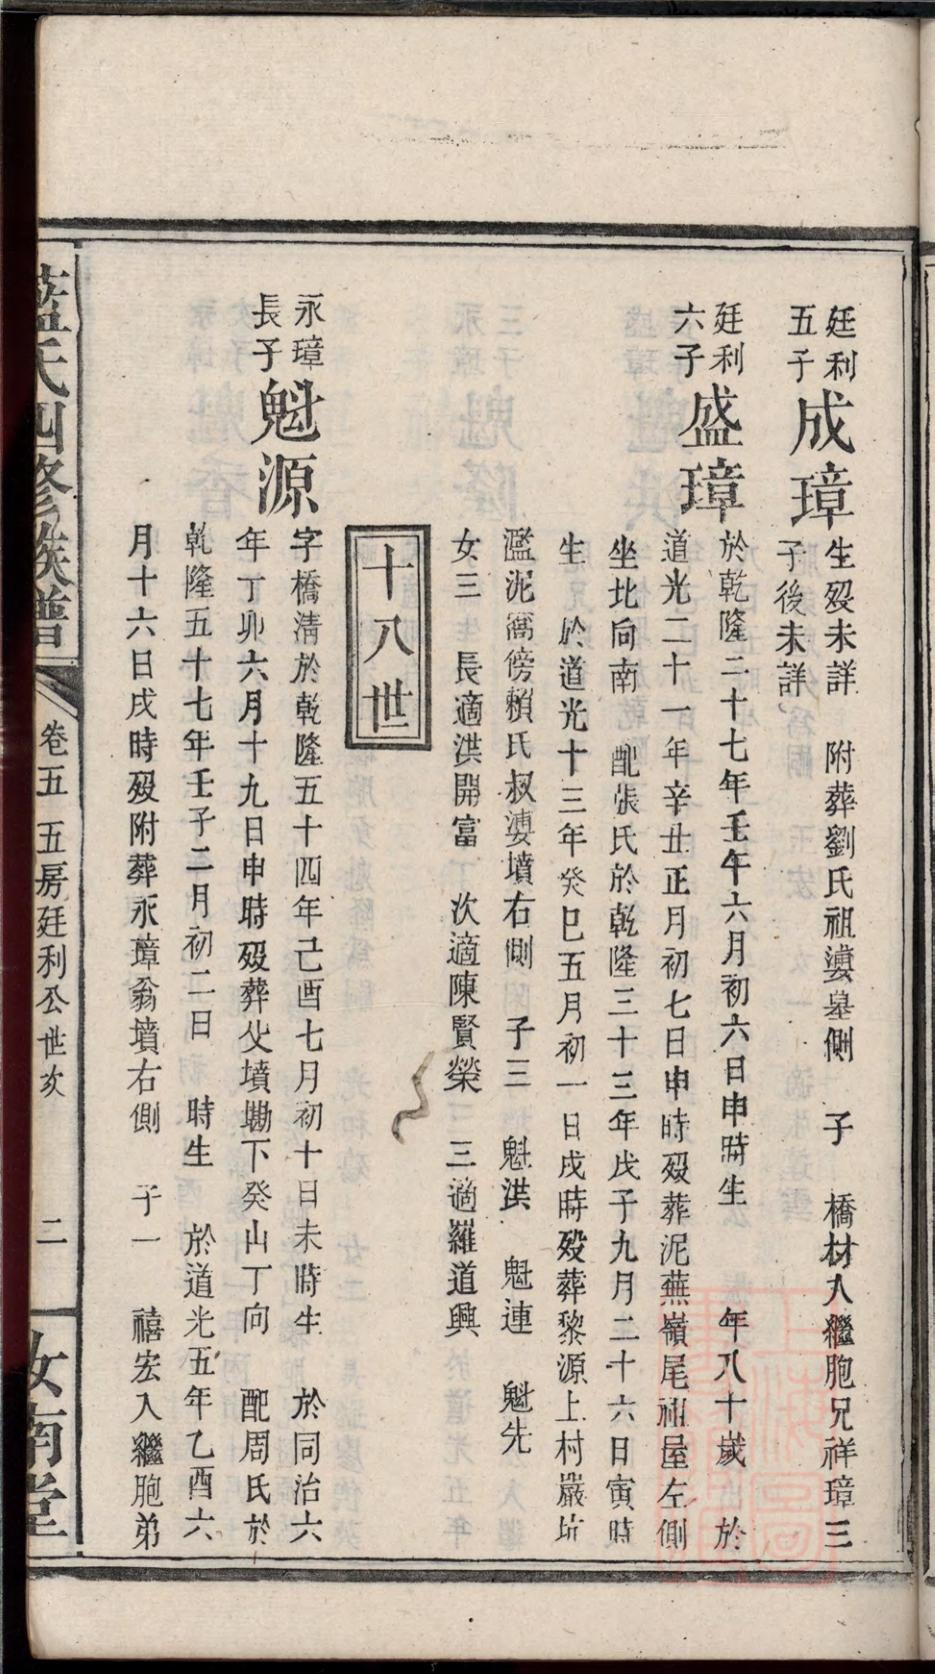 廷利
五子
成璋
生歿未詳 附葬劉氏祖墓側 子 橋材入繼胞兄祥璋三
子後未詳
廷利
六子
盛璋
於乾隆二十七年壬午六月初六日申時生 年八十歲 於
道光二十一年辛丑正月初七日申時歿葬泥蕪嶺尾祖屋左側
坐北向南 配張氏於乾隆三十三年戊子九月二十六日寅時
生 於道光十三年癸巳五月初一日戌時歿葬黎源上村巖坑
濫泥窩傍賴氏叔婆墳右側 子三 魁洪 魁連 魁先
女三 長適洪開富 次適陳賢榮 三適羅道興
十八世
永璋
長子
魁源
字橋清於乾隆五十四年己酉七月初十日未時生 於同治六
年丁卯六月十九日申時歿葬父墳磡下癸山丁向 配周氏於
乾隆五十七年壬子二月初二日 時生 於道光五年乙酉六
月十六日戌時歿附葬永璋翁墳右側 子一 禧宏入繼胞弟
藍氏四修族譜
卷五 五房廷利公世次
二
汝南堂